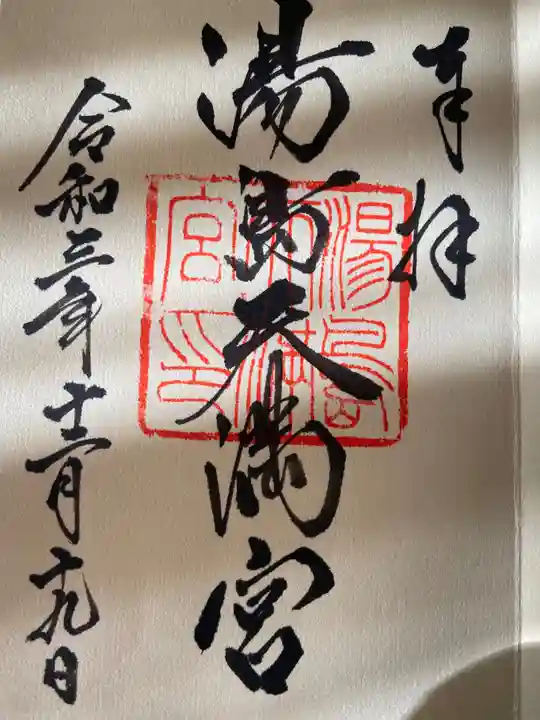 奉拝
湯島天満宮
令和三年十二月十九日
湯島
天満
宮印